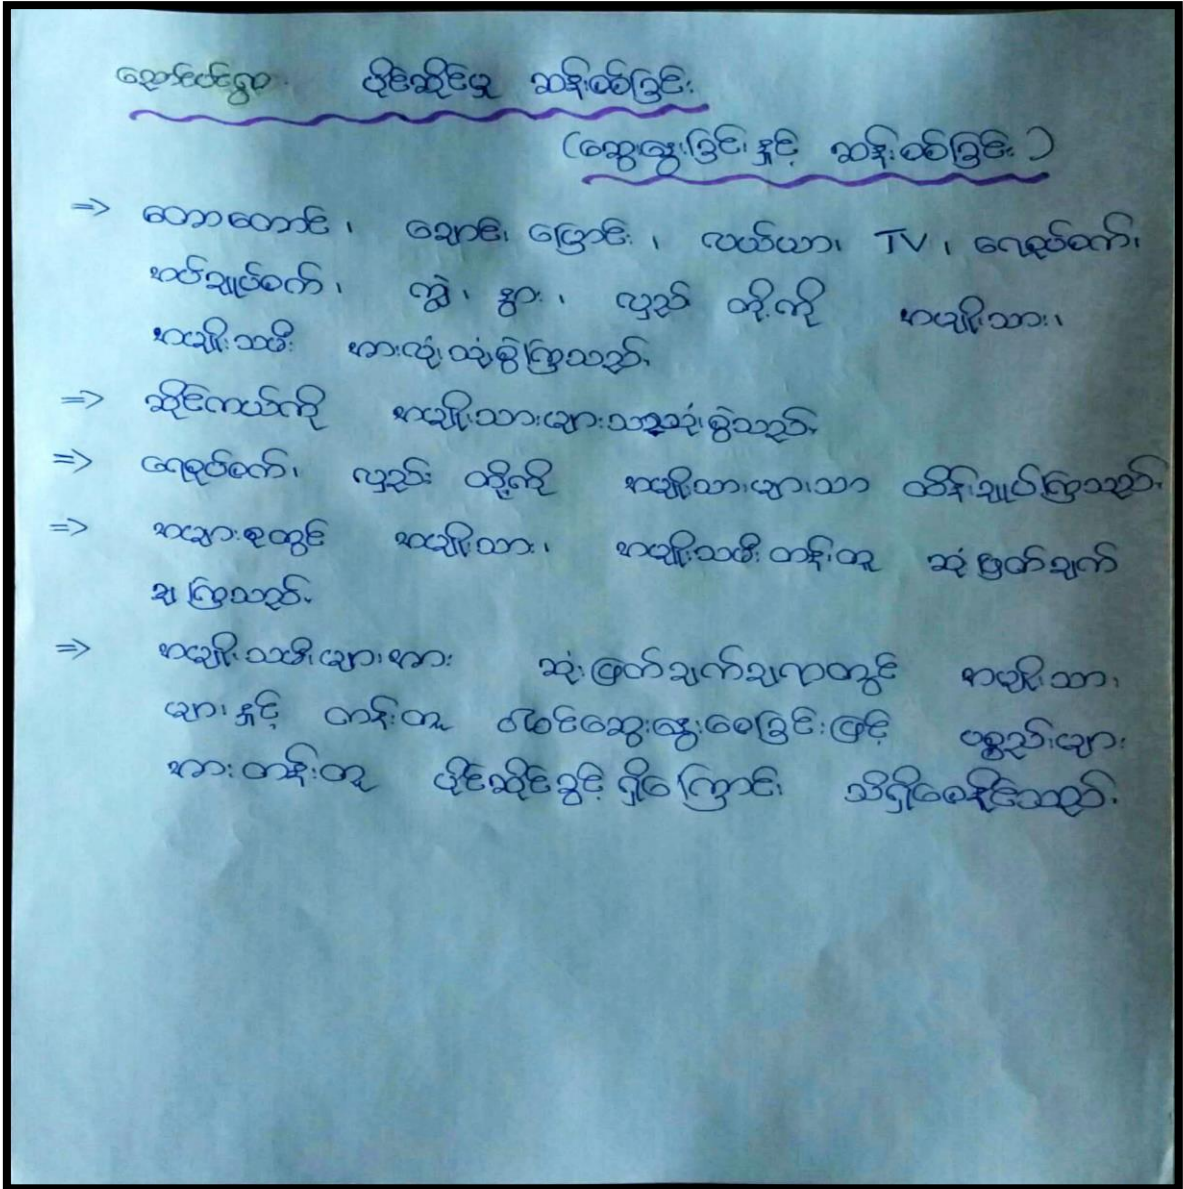 ညောင်ပင်ရွာ ပိုင်ဆိုင်မှု ဆန်းစစ်ခြင်း
(ဆွေးနွေးခြင်းနှင့် ဆန်းစစ်ခြင်း)
⇒ တောတောင်၊ ချောင်းမြောင်း၊ လယ်ယာ၊ TV ၊ ရေစုပ်စက်၊
အပ်ချုပ်စက်၊ ကျွဲ၊ နွား၊ လှည်း တို့ကို အမျိုးသား၊
အမျိုးသမီး အားလုံးသုံးစွဲကြသည်။
⇒ ဆိုင်ကယ်ကို အမျိုးသားများသာသုံးစွဲသည်။
⇒ ရေစုပ်စက်၊ လှည်း တို့ကို အမျိုးသားများသာ ထိန်းချုပ်ကြသည်။
⇒ အများစုတွင် အမျိုးသား၊ အမျိုးသမီးတန်းတူ ဆုံးဖြတ်ချက်
ချကြသည်။
⇒ အမျိုးသမီးများအား ဆုံးဖြတ်ချက်ချရာတွင် အမျိုးသား
များနှင့် တန်းတူ ပါဝင်ဆွေးနွေးစေခြင်းဖြင့် ပစ္စည်းများ
အားတန်းတူ ပိုင်ဆိုင်ခွင့်ရှိကြောင်း သိရှိစေနိုင်သည်။